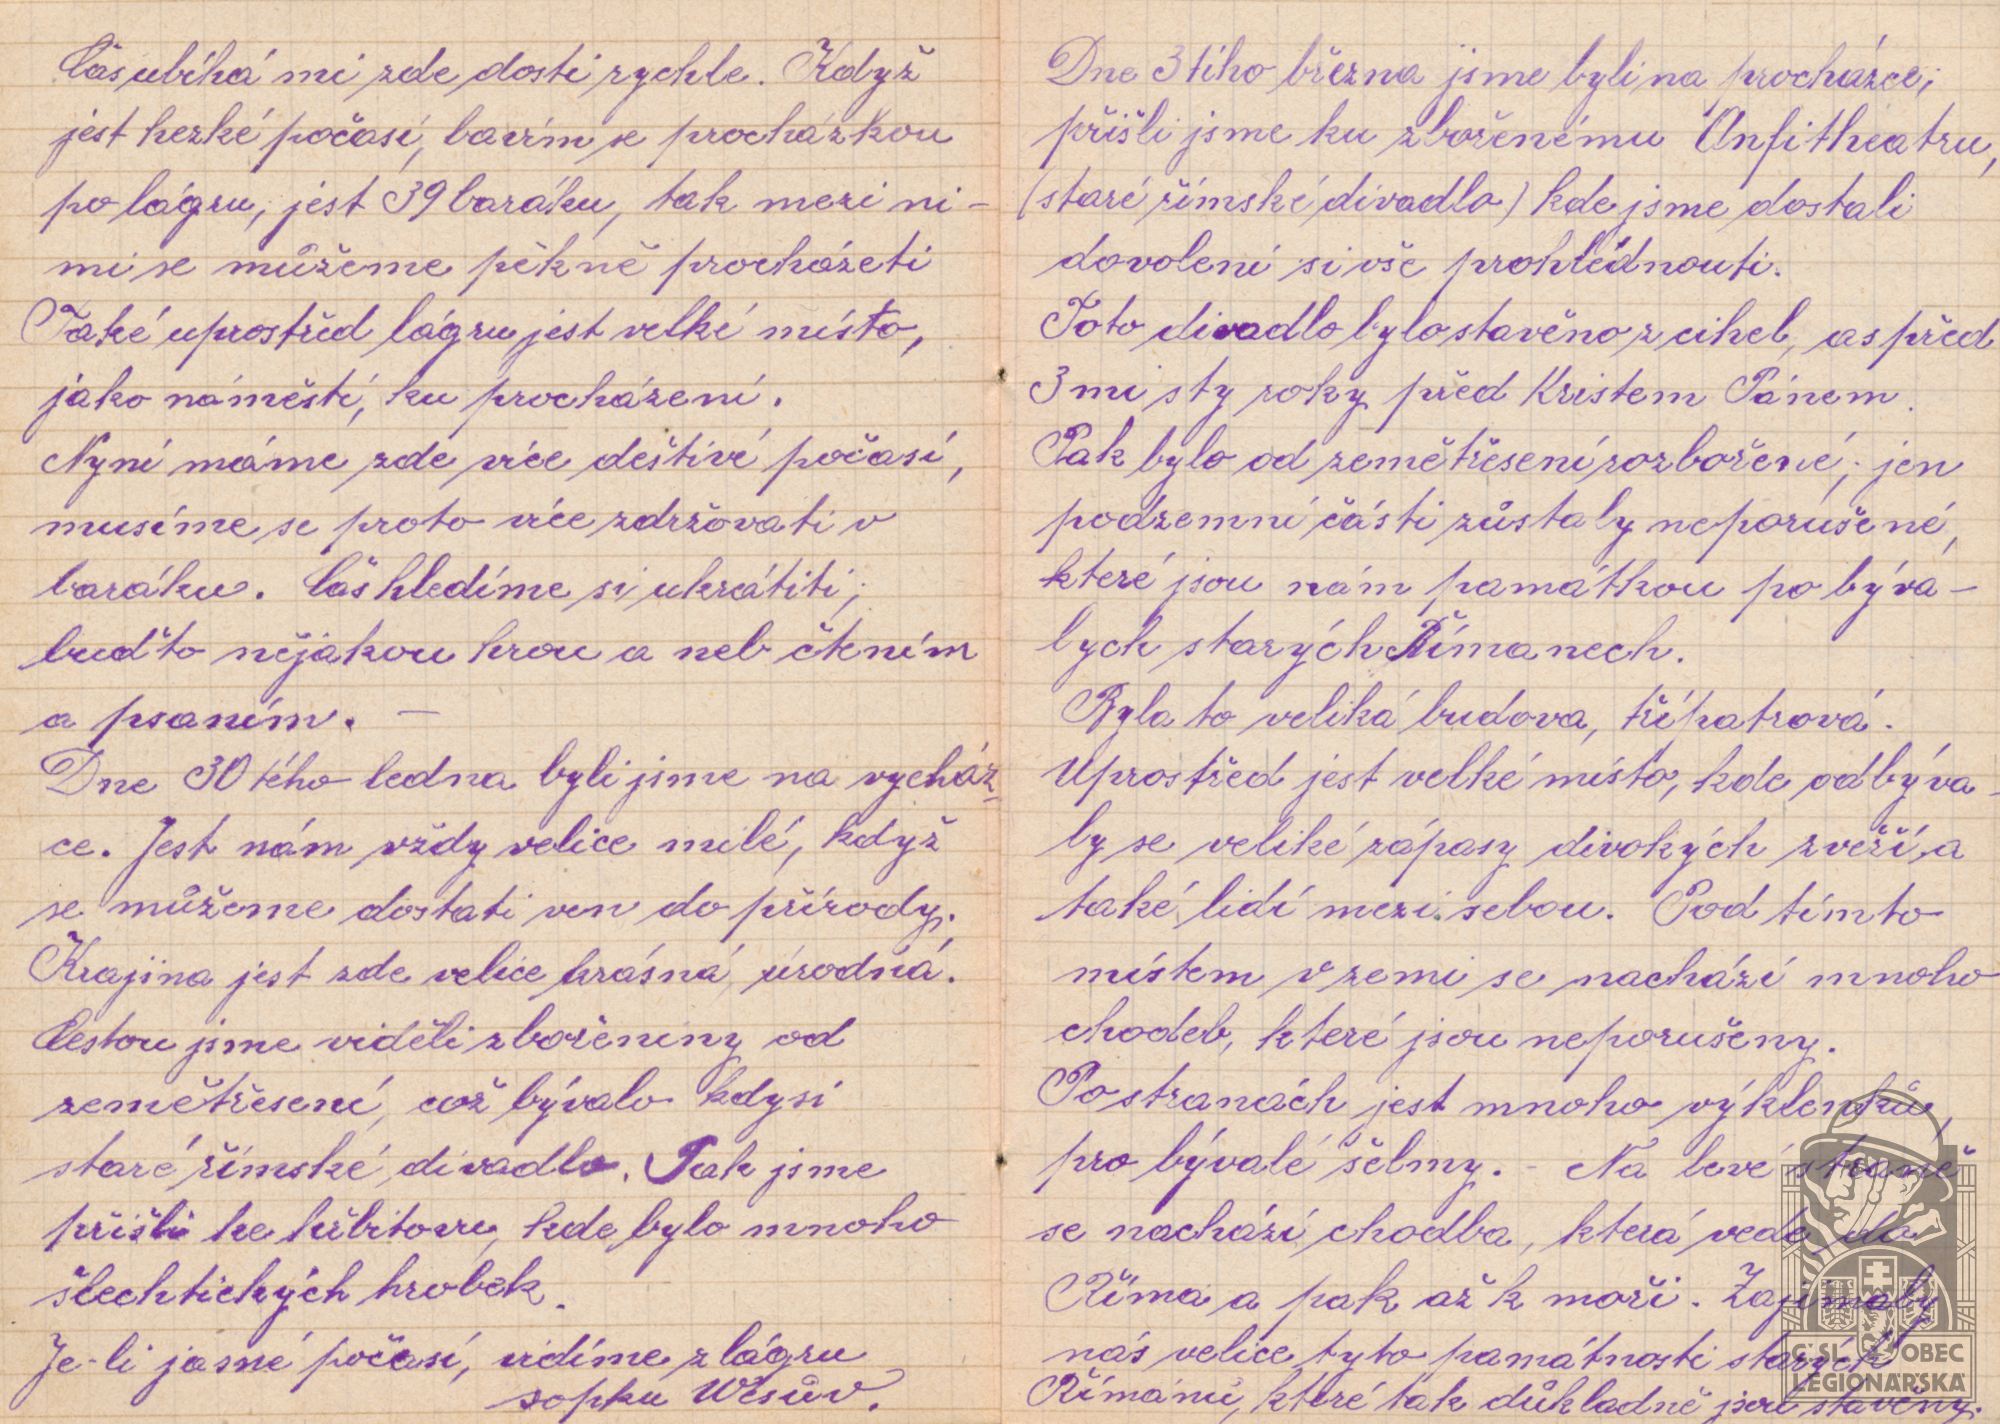 Čas ubíhá mi zde dosti rychle. Když
jest hezké počasí, bavím se procházkou
po lágru, jest 39 baráku, tak mezi ni-
mi se můžeme pěkně procházeti
Také uprostřed lágru jest velké místo,
jako náměstí, ku procházení.
Nyní máme zde více deštivé počasí,
musíme se proto více zdržovati v
baráku. Čas hledíme si ukrátiti;
buďto nějakou hrou a neb čtením
a psaním. —
Dne 30tého ledna byli jsme na vycház-
ce. Jest nám vždy velice milé, když
se můžeme dostati ven do přírody.
Krajina jest zde velice krásná, úrodná.
Cestou jsme viděli zbořeniny od
zemětřesení, což bývalo kdysi
staré římské divadlo. Pak jsme
přišli ke hřbitovu, kde bylo mnoho
šlechtických hrobek.
Je-li jasné počasí, vidíme z lágru
sopku Wesův.
Dne 3tího března jsme byli na procházce;
přišli jsme ku zbořenému Anfitheatru,
(staré římské divadlo) kde jsme dostali
dovolení si vše prohlédnouti.
Toto divadlo bylo stavěno z cihel, as před
3mi sty roky před Kristem Pánem.
Pak bylo od zemětřesení rozbořené; jen
podzemní části zůstaly neporušené,
které jsou nám památkou po býva-
lych starých Římanech.
Byla to veliká budova, třípatrová.
Uprostřed jest velké místo, kde odbýva-
ly se veliké zápasy divokých zvěří, a
také lidí mezi sebou. Pod tímto
místem v zemi se nachází mnoho
chodeb, které jsou neporušeny.
Po stranách jest mnoho výklenků,
pro bývalé šelmy. - Na levé straně
se nachází chodba, která vede do
Říma a pak až k moři. Zajímaly
nás velice tyto památnosti starých
Římanů, které tak důkladně jsou stavěny.
ČSL. OBEC
LEGIONÁŘSKÁ